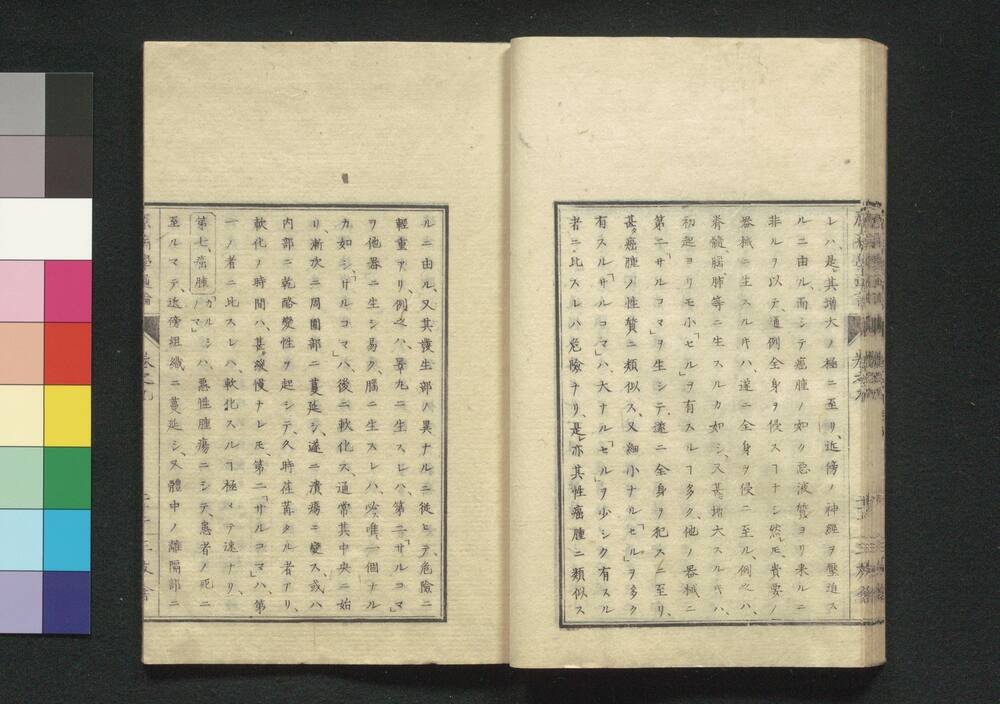 レハ、是其増大ノ極ニ至リ、近傍ノ神経ヲ壓迫ス
ルニ由ル、而シテ癌腫ノ如ク惡液質ヨリ来ルニ
非ルヲ以テ、通例全身ヲ侵スヿナシ、然モ貴要ノ
器械ニ生スルキハ、遂ニ全身ヲ侵ニ至ル、例之ハ、
脊髓、腦、肺等ニ生スルカ如シ、又甚増大スルキハ、
初起ヨリモ小「セル」ヲ有スルヿ多ク、他ノ器械ニ
第二「サルコマ」ヲ生シテ、遂ニ全身ヲ犯スニ至リ、
甚癌腫ノ性質ニ類似ス、又細小ナル「セル」ヲ多ク
有スル「サルコマ」ハ、大ナル「セル」ヲ少シク有スル
者ニ比スレハ危險ナリ、是亦其性癌腫ニ類似ス
ルニ由ル、又其發生部ノ異ナルニ従ヒテ、危險ニ
輕重アリ、例之ハ、睾丸ニ生スレハ、第二「サルコマ」
ヲ他器ニ生シ易ク、腦ニ生スレハ、唯一個ナル
カ如シ、「サルコマ」ハ、後ニ軟化ス、通常其中央ニ始
リ、漸次ニ周圍部ニ蔓延シ、遂ニ潰瘍ニ變ス、或ハ
内部ニ乾酪變性ヲ起シテ、久時荏苒タル者アリ、
軟化ノ時間ハ、甚緩慢ナレモ、第二「サルコマ」ハ、第
一ノ者ニ比スレハ、軟化スルヿ極メテ速ナリ、
第七、癌腫「カルシノマ」ハ、惡性腫瘍ニシテ、患者ノ死ニ
至ルマテ、近傍組織ニ蔓延シ、又體中ノ離隔部ニ
原病學通論
卷之九